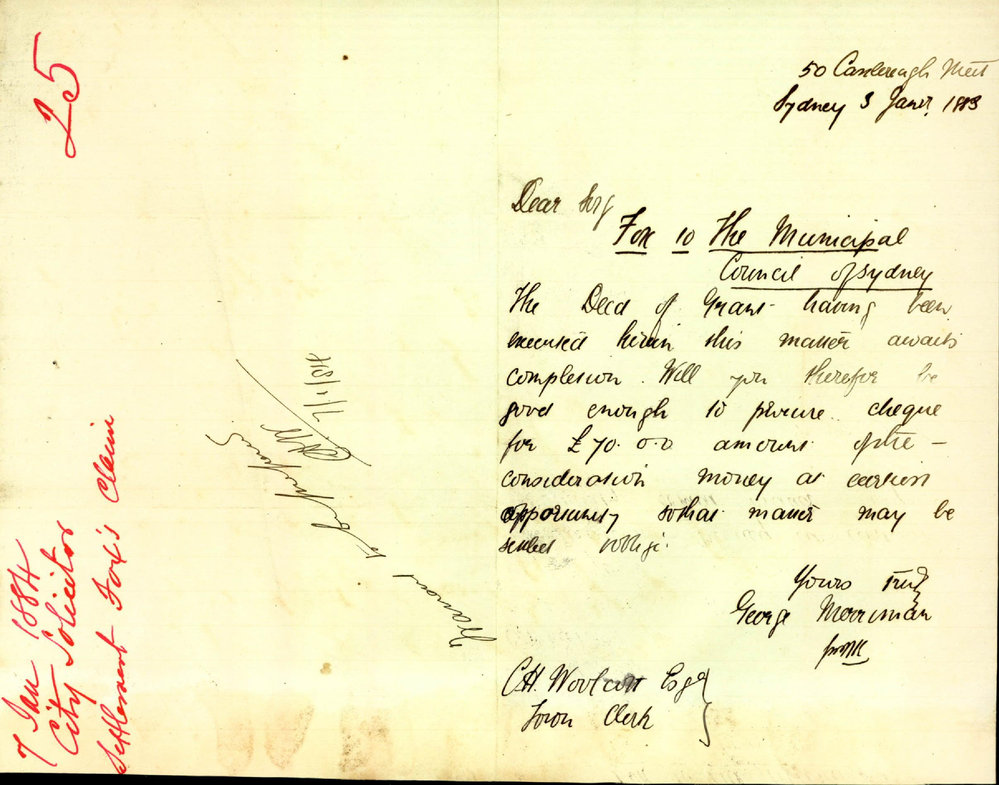 50 Castlereagh Street
Sydney 3 Jany 1883
Dear Sir
Fox to The Municipal
Council of Sydney
The Deed of Grant having been
executed herein this matter awaits
completion. Will you therefor be
good enough to procure cheque
for £70.0.0 amount of the –
consideration money at earliest
opportunity so that matter may be
settled & oblige.
Yours truly
George Merriman
C.H. Woolcott Esqe
Town Clerk
Warrant to be prepared
CHW 7/1/84
25
7 Jan 1884
City Solicitor
Settlement Fox's Claim